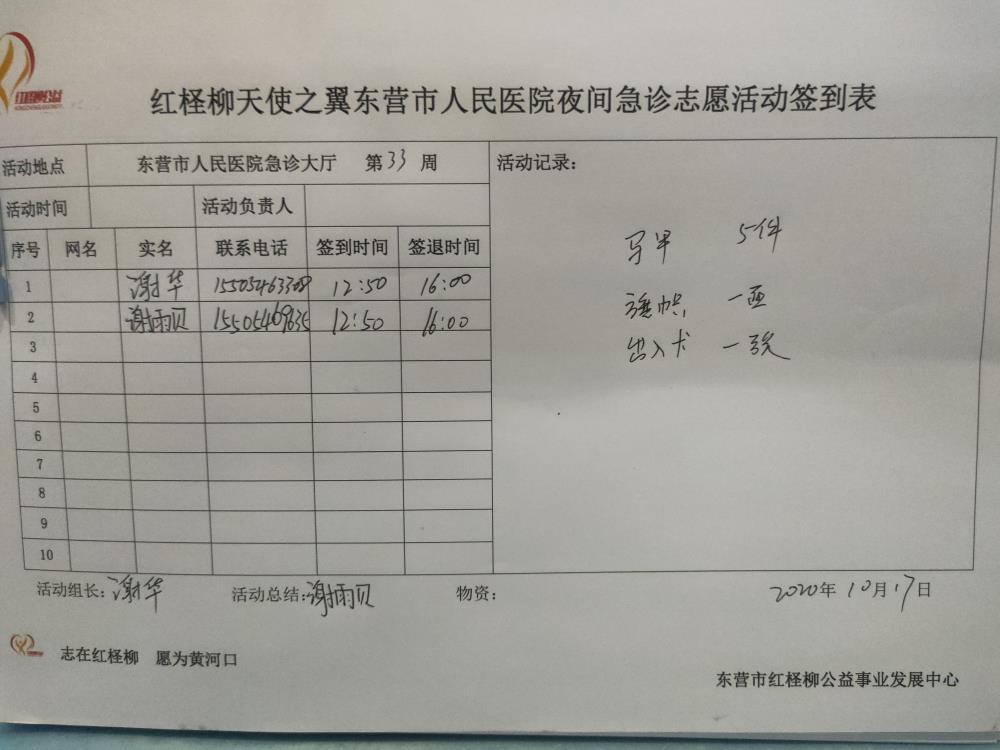 红柽柳公益
红柽柳天使之翼东营市人民医院夜间急诊志愿活动签到表
活动地点 东营市人民医院急诊大厅 第33周
活动时间 活动负责人
序号 网名 实名 联系电话 签到时间 签退时间
1 谢华 15505463308 12:50 16:00
2 谢雨贝 15505469635 12:50 16:00
3
4
5
6
7
8
9
10
活动记录:
马甲 5件
旗帜 一面
出入卡 一张
活动组长:谢华 活动总结:谢雨贝 物资: 2020年10月17日
志在红柽柳 愿为黄河口
东营市红柽柳公益事业发展中心